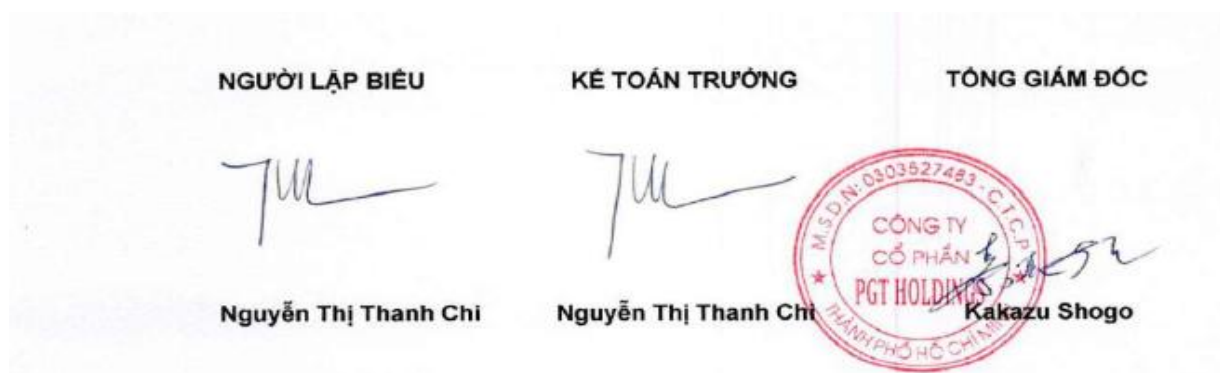 NGƯỜI LẬP BIỂU KẾ TOÁN TRƯỞNG TỔNG GIÁM ĐỐC
M.S.D.N: 0303527483 - C.T.C.P
CÔNG TY
CỔ PHẦN
PGT HOLDINGS
THÀNH PHỐ HỒ CHÍ MINH
Nguyễn Thị Thanh Chi Nguyễn Thị Thanh Chi Kakazu Shogo